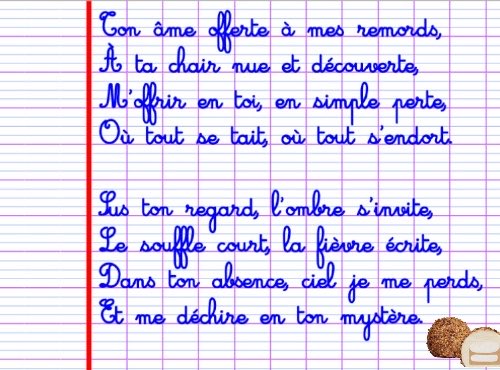 Ton âme offerte à mes remords,
À ta chair nue et découverte,
M'offrir en toi, en simple perte,
Où tout se tait, où tout s'endort.
Sus ton regard, l'ombre s'invite,
Le souffle court, la fièvre écrite,
Dans ton absence, ciel je me perds,
Et me déchire en ton mystère.